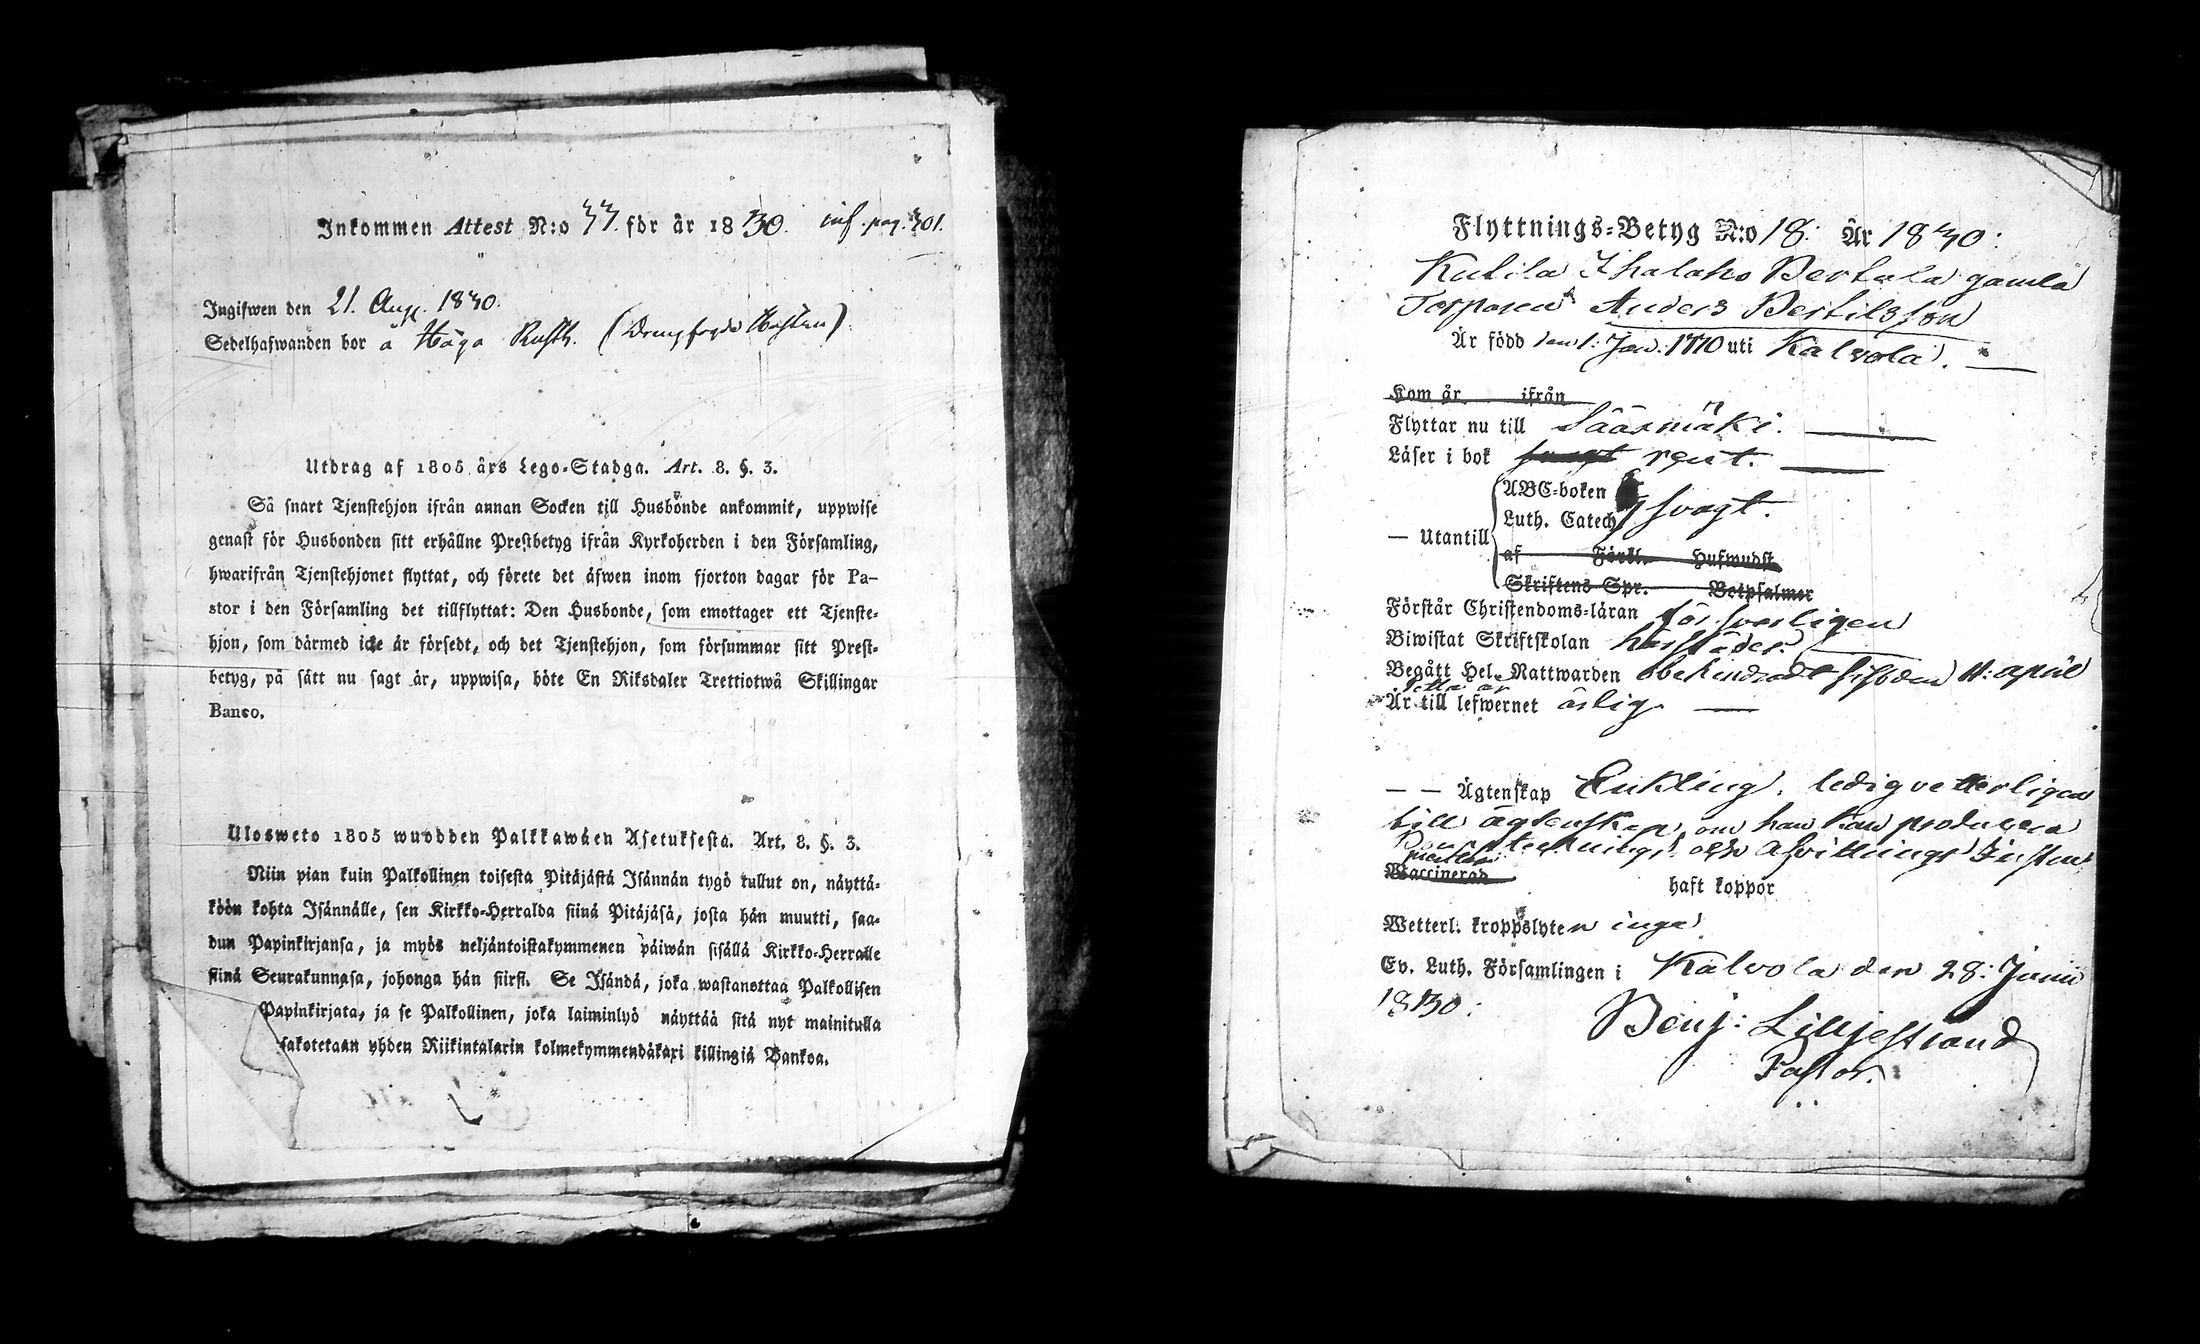 Inkommen Attest N:o 33. för år 1830. inf. pag. 301.
Ingifwen den 21. Aug. 1830.
Sedelhafwanden bor å Haga Rusth.
Utdrag af 1805 års Lego-Stadga. Art. 8. §. 3.
Så snart Tjenstehjon ifrån annan Socken till Husbonde ankommit, uppwise
genast för Husbonden sitt erhållne Prestbetyg ifrån Kyrkoherden i den Församling,
hwarifrån Tjenstehjonet flyttat, och förete det äfwen inom fjorton dagar för Pa-
stor i den Församling det tillflyttat: Den Husbonde, som emottager ett Tjenste-
hjon, som därmed icke är försedt, och det Tjenstehjon, som försummar sitt Prest-
betyg, på sätt nu sagt är, uppwisa, böte En Riksdaler Trettiotwå Skillingar
Banco.
Ulosweto 1805 wuodden Palkkawäen Asetuksesta. Art. 8. §. 3.
Niin pian kuin Palkollinen toisesta Pitäjästä Isännän tygö tullut on, näyttä-
köön kohta Isännälle, sen Kirkko-Herralda siinä Pitäjäsä, josta hän muutti, saa-
dun Papinkirjansa, ja myös neljäntoistakymmenen päiwän sisällä Kirkko-Herralle
siinä Seurakunnasa, johonga hän siirsi. Se Isändä, joka wastanottaa Palkollisen
Papinkirjata, ja se Palkollinen, joka laiminlyö näyttää sitä nyt mainitulla
sakotetaan yhden Riikintalarin kolmekymmendäkaxi killingiä Bankoa.
Flyttnings-Betyg N:o 18. År 1830:
Kutila Bertula gamla
Torparen Anders Bertilsson
Är född den 1. Jan. 1770 uti Kalvola.
Kom år ifrån
Flyttar nu till Sääsmäki.
Läser i bok svagt rent.
ABC-boken
Luth. Catech. svagt.
— Utantill
af Förkl. Hufwudst.
Skriftens Spr. Botpsalmer
Förstår Christendoms-läran försvarligen
Biwistat Skriftskolan härstädes.
Begått Hel. Nattwarden obehindradt sistden 11: april
Är till lefwernet ärlig.
— — Ägtenskap Enkling, ledig vetterligen
till ägtenskap, om han kan producera
och Afvittrings
Waccinerad haft koppor
Wetterl. kroppslyten inga
Ev. Luth. Församlingen i Kalvola den 28: Junii
1830:
Benj: Lilljestrand
Pastor.